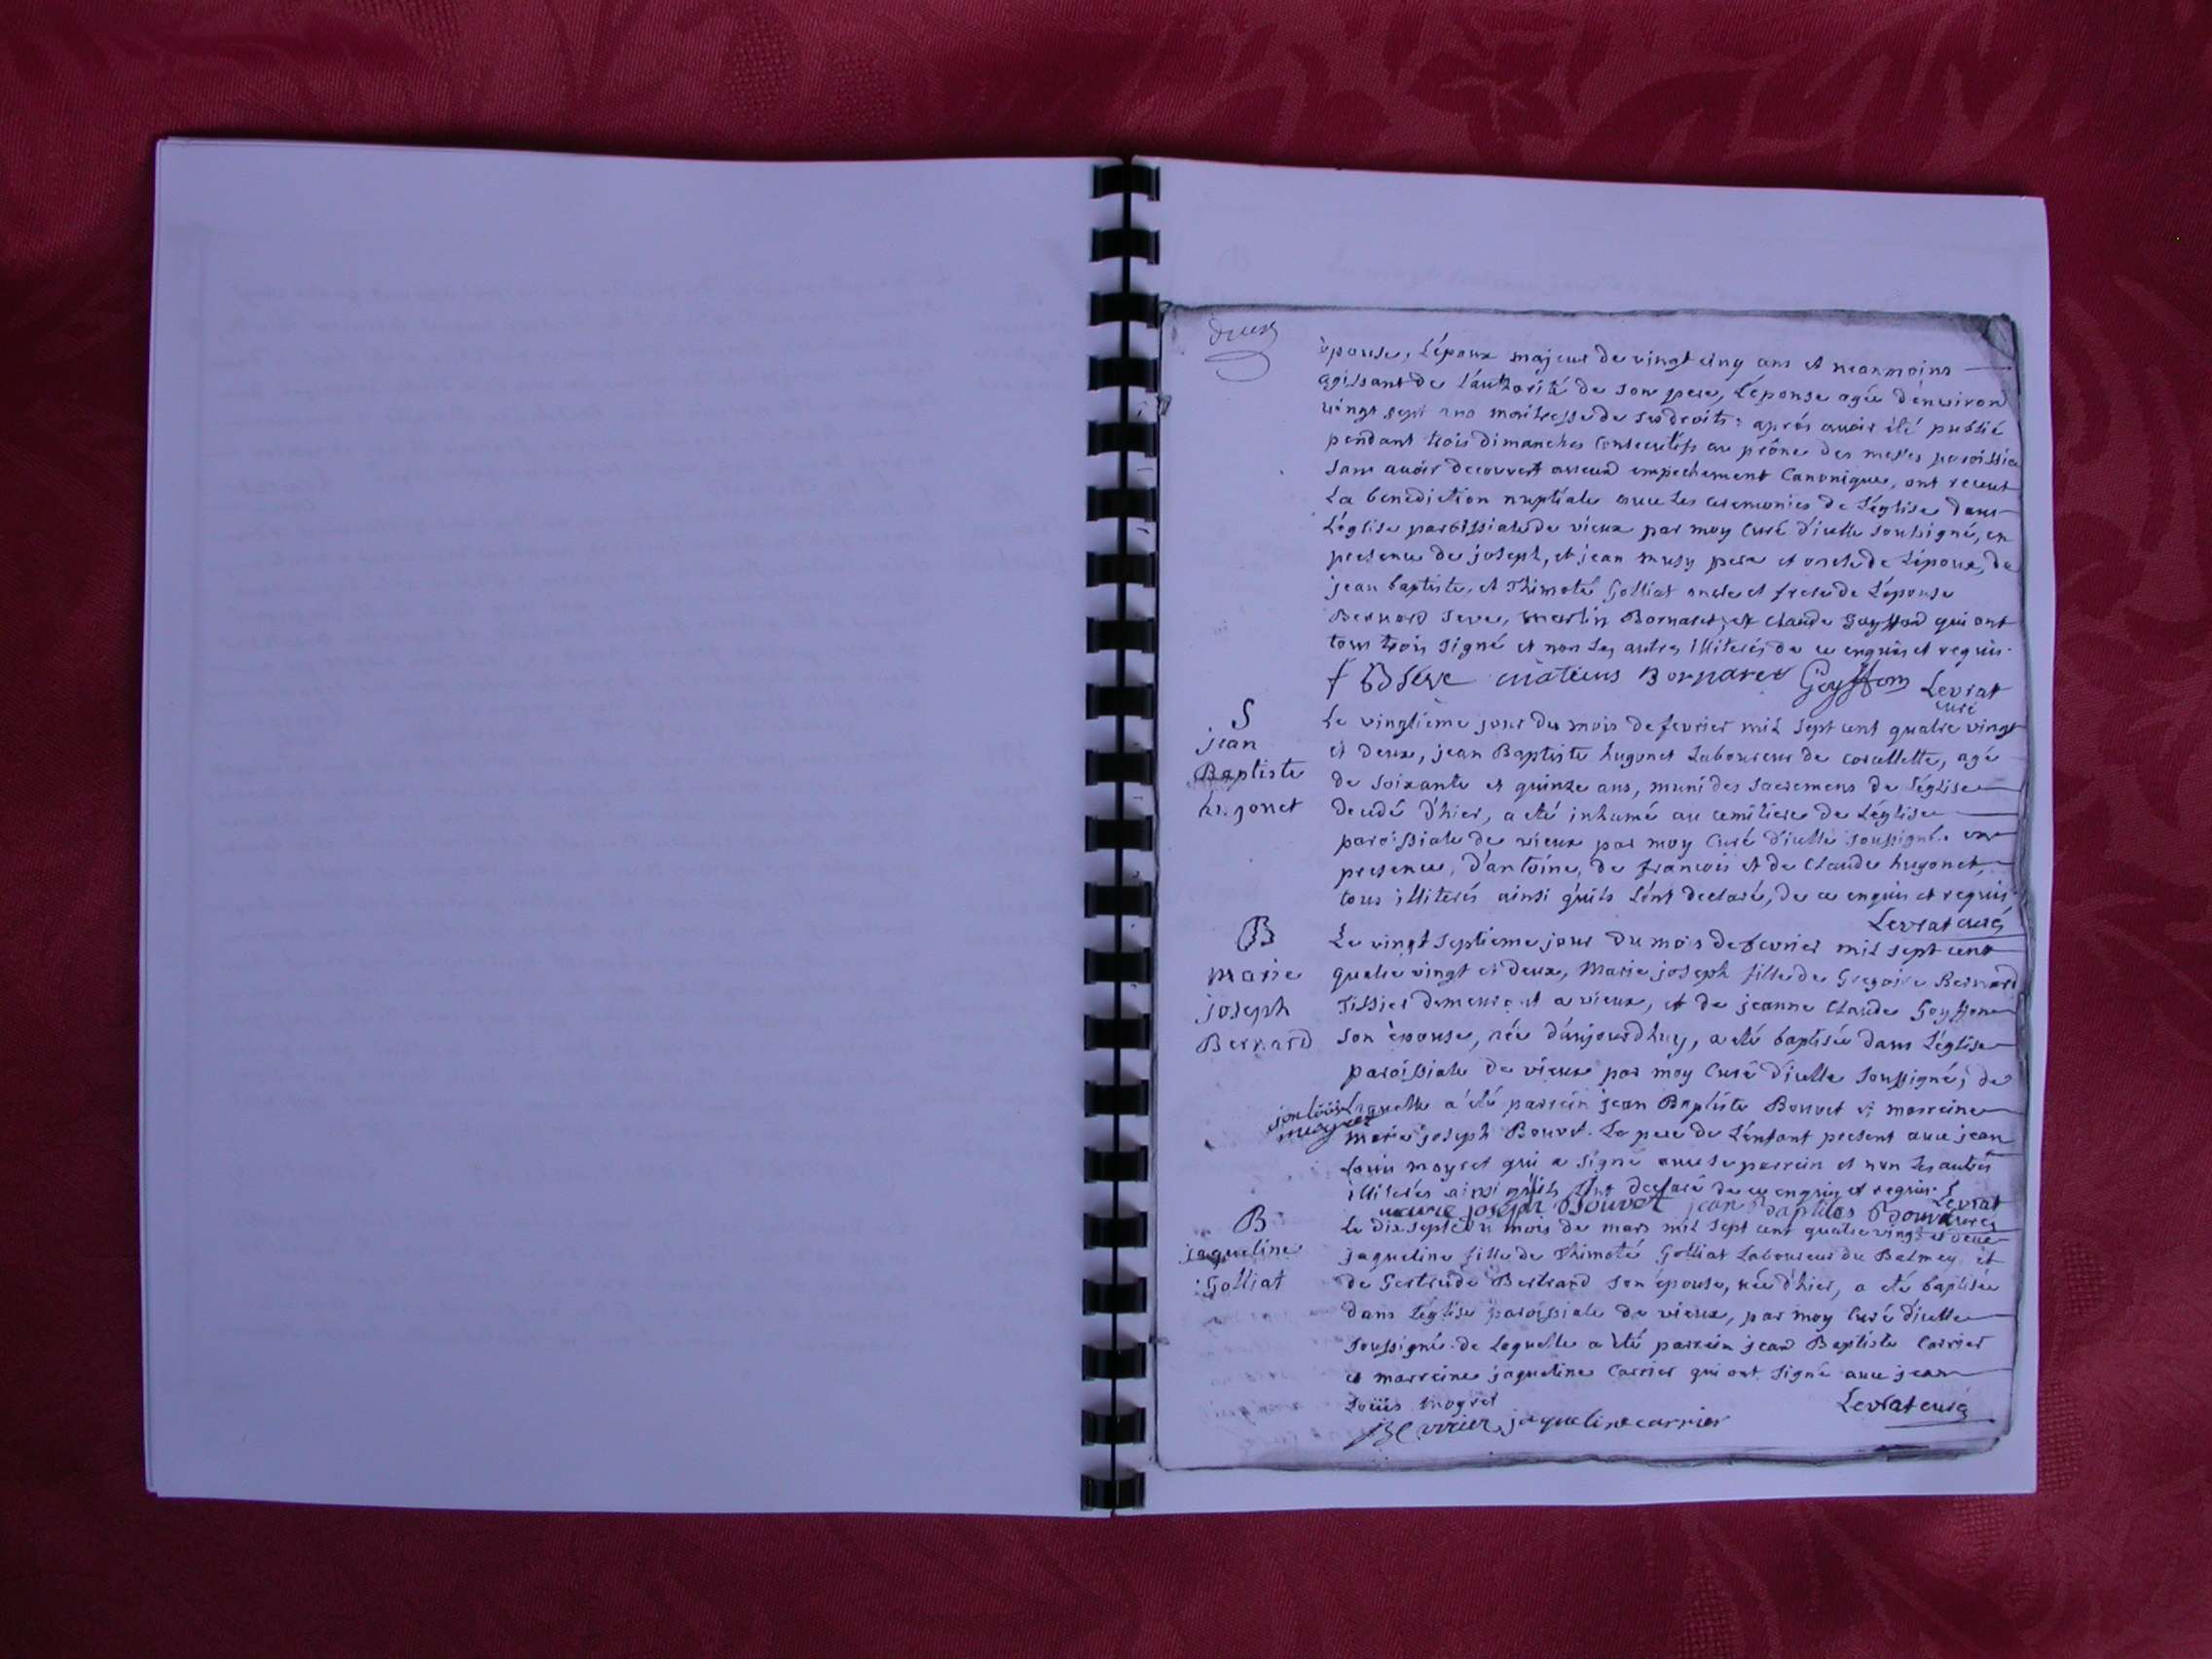 deux
épouse, L'époux majeur de vingt cinq ans et neanmoins
agissant de l'authorité de son pere, L'épouse agée d'environ
vingt sept ans maitresse de ses droits: aprés avoir été publié
pendant trois dimanches consecutifs au prône des messes paroissia
sans avoir decouvert aucun empechement Canonique, ont receut
La benediction nuptiale avec les ceremonies de L'église dans
L'église paroissiale de vieux par moy Curé d'icelle soussigné, en
presence de joseph, et jean musy pere et oncle de L'époux, de
jean baptiste, et Thimoté Golliat oncle et frere de L'épouse
Bernard Seve, martin Bornaret, et Claude Goyffon qui ont
tous trois signé et non les autres illiterés de ce enquis et requis.
Bornaret Goyffon Levrat
curé
S
jean
Baptiste
hugonet
Le vingtième jour du mois de fevrier mil sept cent quatre vingt
et deux, jean Baptiste hugonet Laboureur de , agé
de soixante et quinze ans, muni des sacremens de L'église
decedé d'hier, a été inhumé au cemitiere de L'église
paroissiale de vieux par moy Curé d'icelle soussigné. en
presence, d'antoine, de francois et de Claude hugonet,
tous illiterés ainsi qu'ils l'ont declaré, de ce enquis et requis.
Levrat curé
B
marie
joseph
Bernard
Le vingt septieme jour du mois de fevrier mil sept cent
quatre vingt et deux, Marie joseph fille de Gregoire Bernard
Tissier demeurant a vieux, et de jeanne Claude Goyffon
son épouse, née d'aujourdhuy, a été baptisée dans L'église
paroissiale de vieux par moy Curé d'icelle soussigné; de
Laquelle a été parrein jean Baptiste Bouvet et marreine
marie joseph Bouvet. Le pere de L'enfant present avec jean
Louis moyret qui a signé avec le parrein et non les autres
illiterés ainsi qu'ils l'ont declaré de ce enquis et requis. Levrat
marie joseph Bouvet jean Baptiste Bouvet curé
B
jaqueline
Golliat
Le dix sept du mois de mars mil sept cent quatre vingt et deux
jaqueline fille de Thimoté Golliat Laboureur du Balmey, et
de Gertrude Bertrand son épouse, née d'hier, a été baptisée
dans L'église paroissiale de vieux, par moy Curé d'icelle
soussigné. de Laquelle a été parrein jean Baptiste Carrier
et marreine jaqueline Carrier qui ont signé avec jean
Louis moyret
Levrat curé
jaqueline carrier